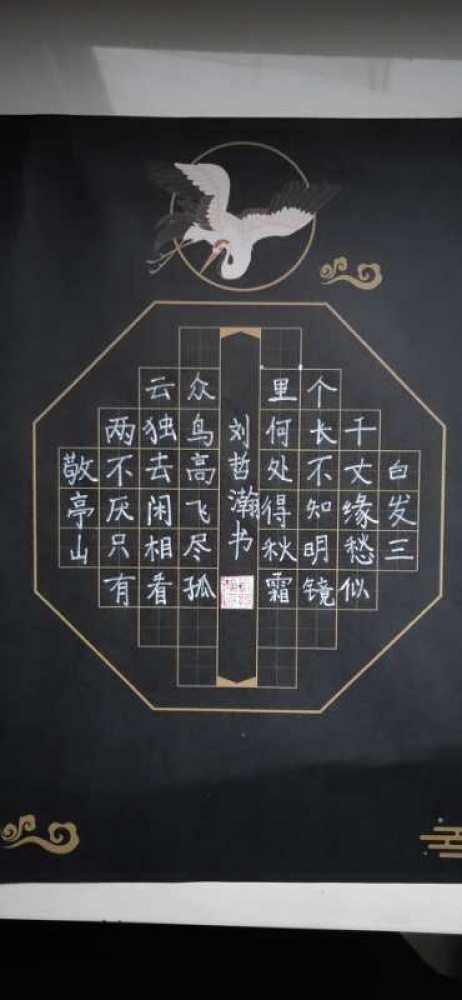 白发三
千丈缘愁似
个长不知明镜
里何处得秋霜
刘哲瀚书
众鸟高飞尽孤
云独去闲相看
两不厌只有
敬亭山